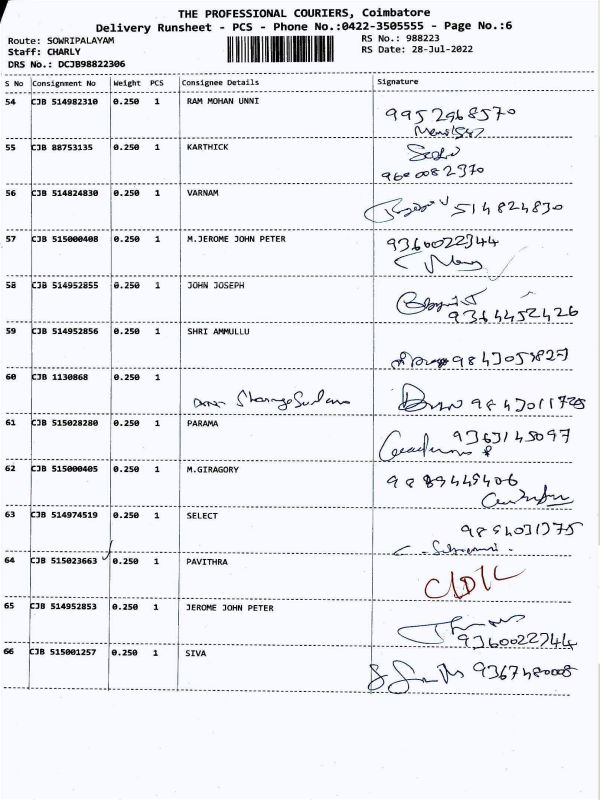 THE PROFESSIONAL COURIERS, Coimbatore
Delivery Runsheet - PCS - Phone No.:0422-3505555 - Page No.:6
Route: SOWRIPALAYAM RS No.: 988223
Staff: CHARLY RS Date: 28-Jul-2022
DRS No.: DCJB98822306
S No Consignment No Weight PCS Consignee Details Signature
54 CJB 514982310 0.250 1 RAM MOHAN UNNI
9952968570
55 CJB 88753135 0.250 1 KARTHICK
56 CJB 514824830 0.250 1 VARNAM
514824830
57 CJB 515000408 0.250 1 M.JEROME JOHN PETER 9360022344
58 CJB 514952855 0.250 1 JOHN JOSEPH
9364452426
59 CJB 514952856 0.250 1 SHRI AMMULLU
60 CJB 1130868 0.250 1
61 CJB 515028280 0.250 1 PARAMA
9363145097
62 CJB 515000405 0.250 1 M.GIRAGORY
63 CJB 514974519 0.250 1 SELECT
64 CJB 515023663 0.250 1 PAVITHRA
65 CJB 514952853 0.250 1 JEROME JOHN PETER
9360022344
66 CJB 515001257 0.250 1 SIVA
9367480008